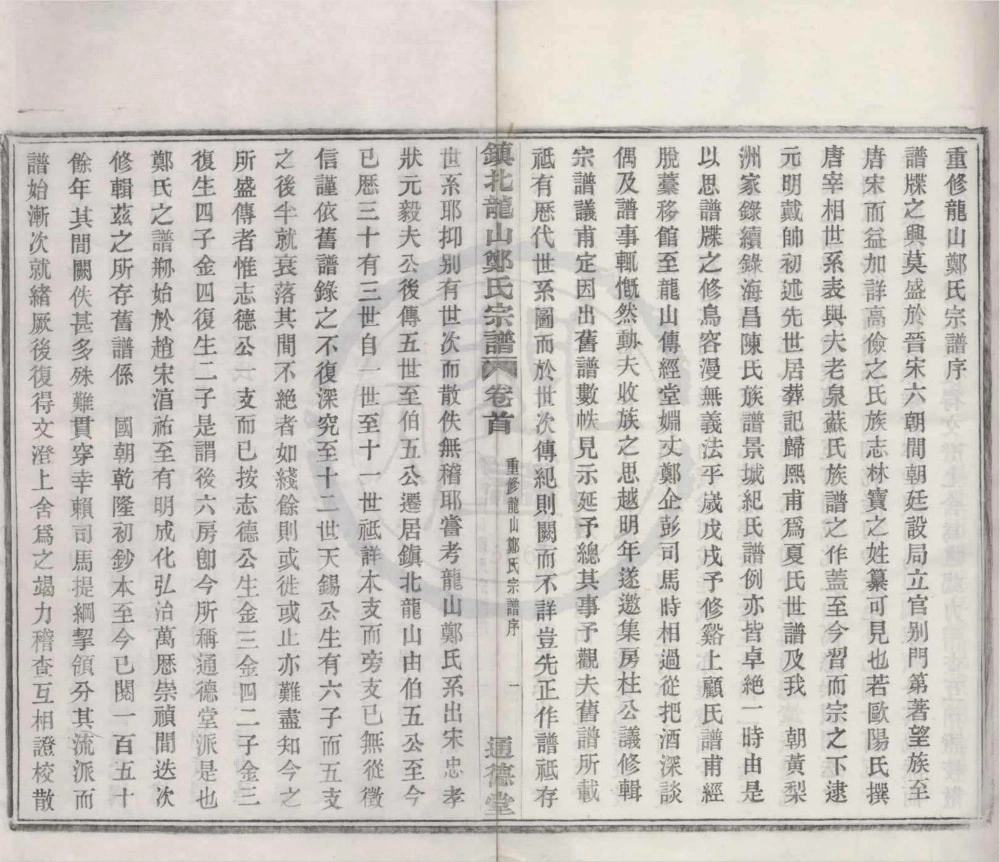 重修龍山鄭氏宗譜序
譜牒之興莫盛於晉宋六朝間朝廷設局立官別門第著望族至
唐宋而益加詳高儉之氏族志林寶之姓纂可見也若歐陽氏撰
唐宰相世系表與夫老泉蘇氏族譜之作蓋至今習而宗之下逮
元明戴帥初述先世居葬記歸熙甫爲夏氏世譜及我 朝黃梨
洲家錄續錄海昌陳氏族譜景城紀氏譜例亦皆卓絕一時由是
以思譜牒之修烏容漫無義法乎歲戊戌予修谿上顧氏譜甫經
脫藁移館至龍山傳經堂婣丈鄭企彭司馬時相過從把酒深談
偶及譜事輒慨然動夫收族之思越明年遂邀集房柱公議修輯
宗譜議甫定因出舊譜數帙見示延予總其事予觀夫舊譜所載
祇有厯代世系圖而於世次傳紀則闕而不詳豈先正作譜祇存
鎮北龍山鄭氏宗譜 卷首 重修龍山鄭氏宗譜序 一 通德堂
世系耶抑別有世次而散佚無稽耶嘗考龍山鄭氏系出宋忠孝
狀元毅夫公後傳五世至伯五公遷居鎮北龍山由伯五公至今
已厯三十有三世自一世至十一世祇詳本支而旁支已無從徵
信謹依舊譜錄之不復深究至十二世天錫公生有六子而五支
之後半就衰落其間不絕者如綫餘則或徙或止亦難盡知今之
所盛傳者惟志德公一支而已按志德公生金三金四二子金三
復生四子金四復生二子是謂後六房卽今所稱通德堂派是也
鄭氏之譜剏始於趙宋湻祐至有明成化弘治萬厯崇禎間迭次
修輯茲之所存舊譜係 國朝乾隆初鈔本至今已閱一百五十
餘年其間闕佚甚多殊難貫穿幸賴司馬提綱挈領分其流派而
譜始漸次就緒厥後復得文澄上舍爲之竭力稽查互相證校散